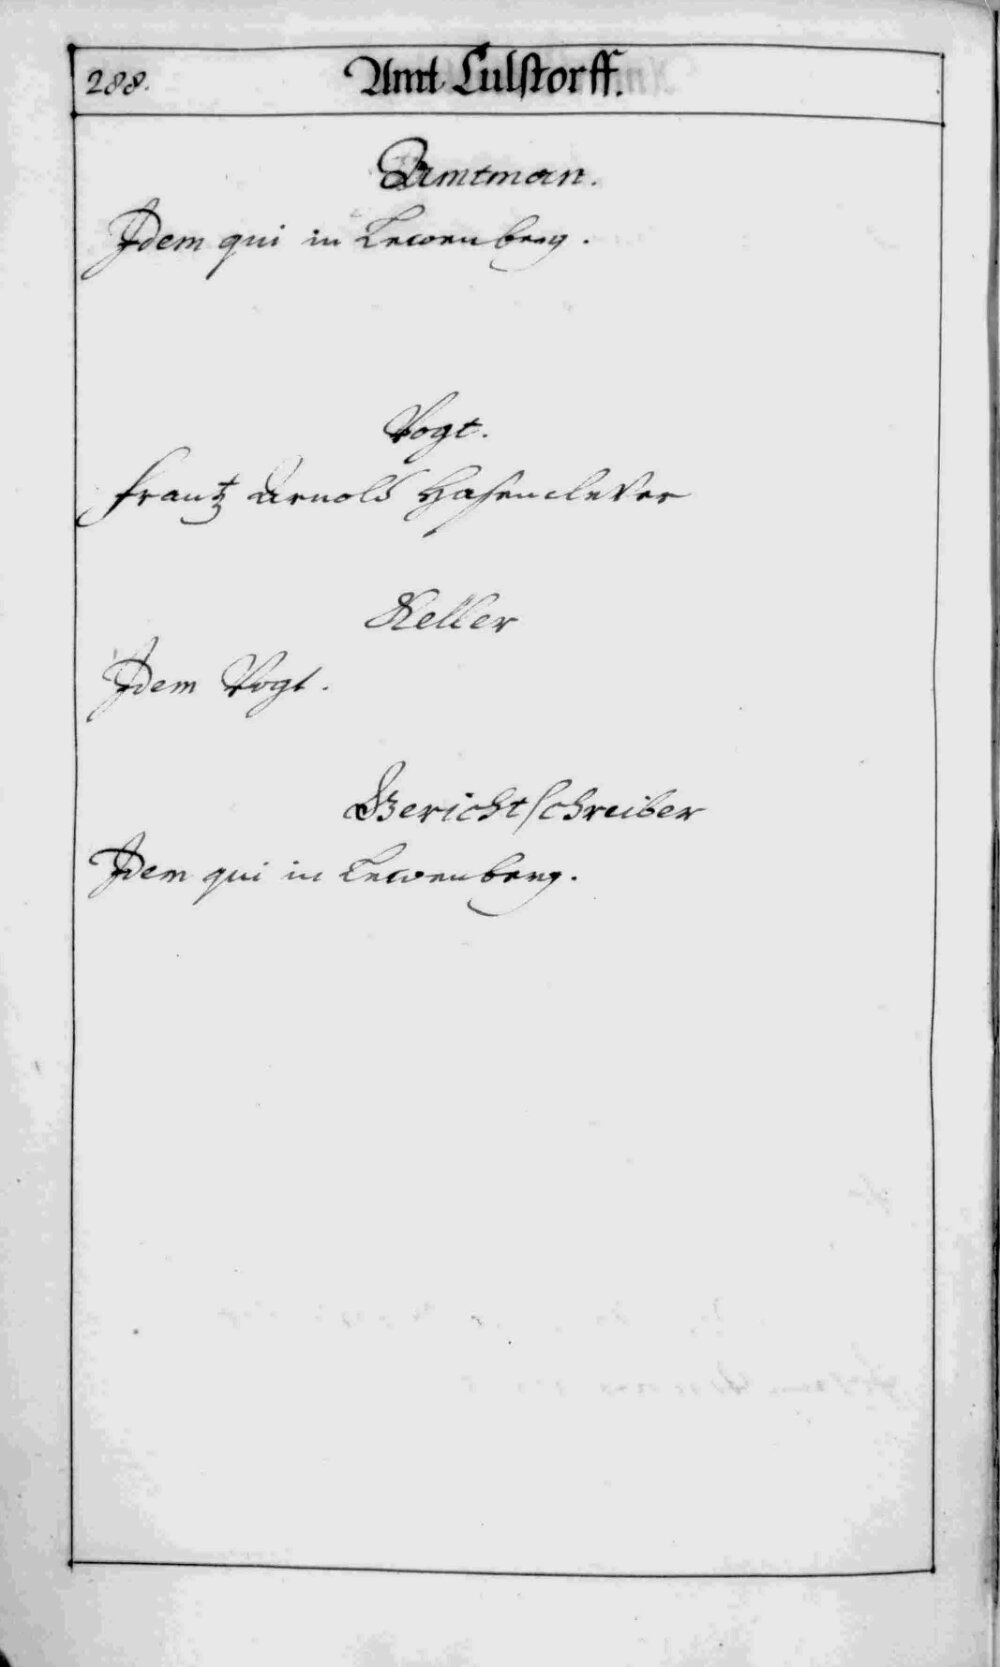 288.
Amt Lulstorff.
Amtman.
Idem qui in Lewenberg.
Vogt.
Frantz Arnold Hasenclever
Keller
Idem Vogt.
Gerichtschreiber
Idem qui in Lewenberg.